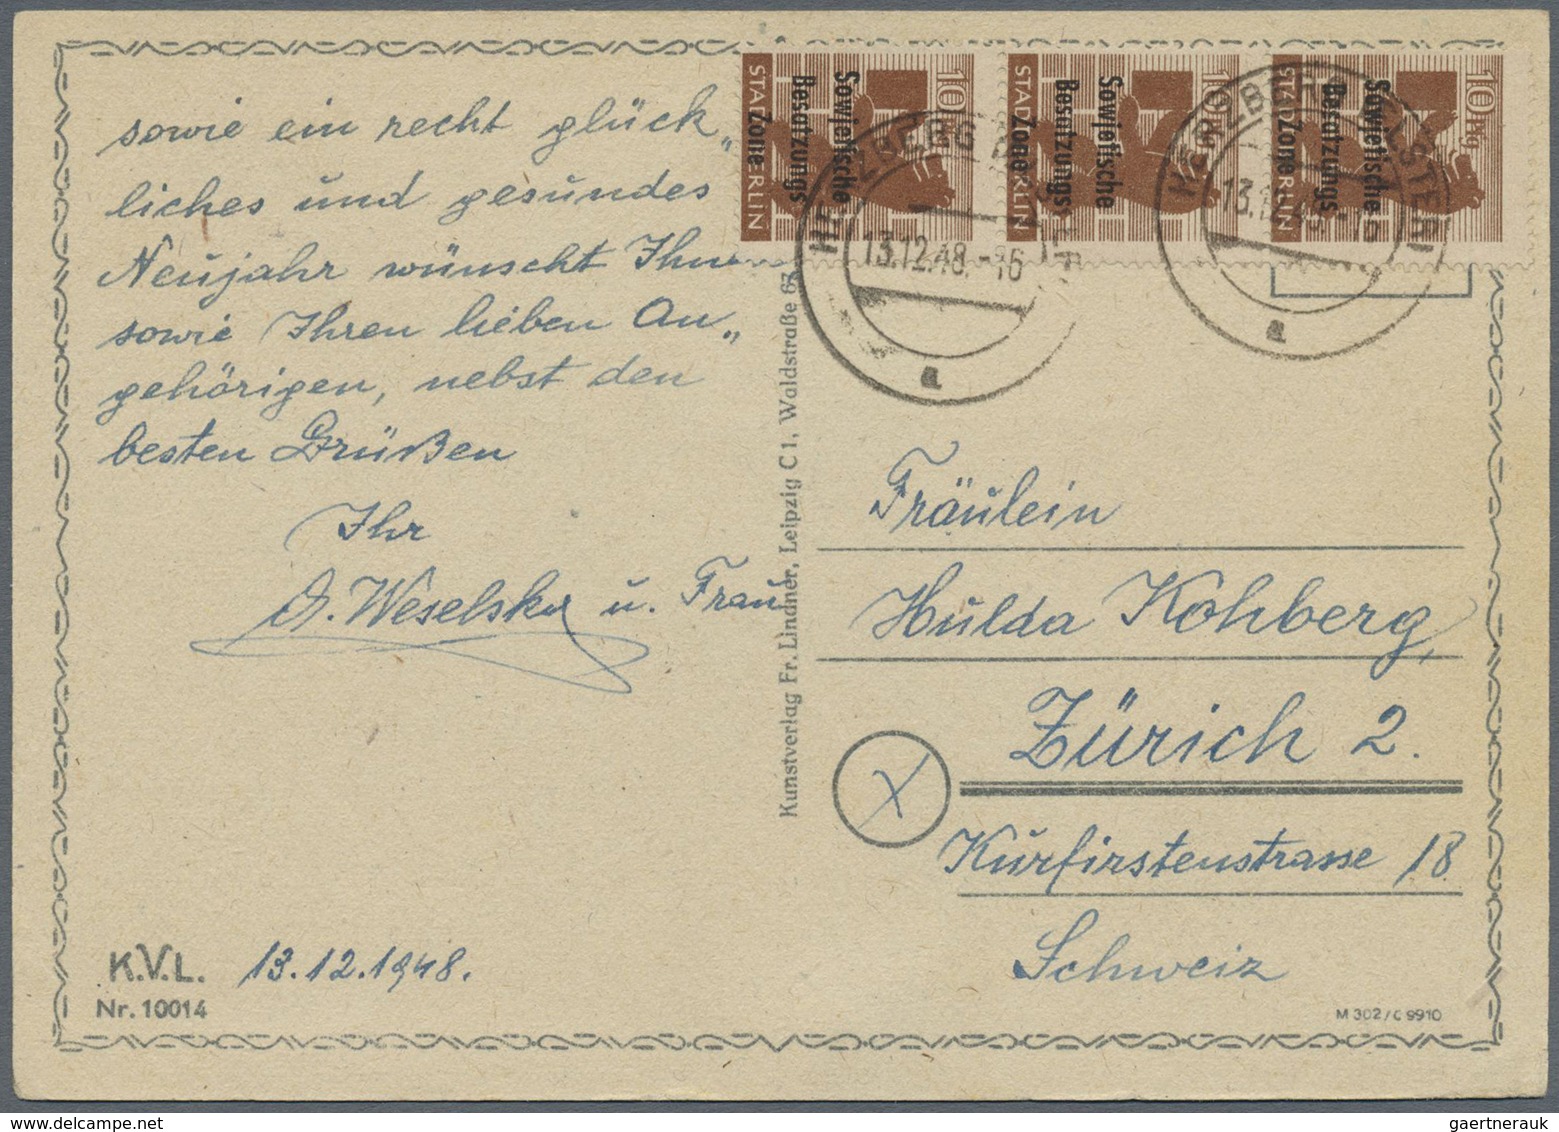 sowie ein recht glück„
liches und gesundes
Neujahr wünscht Ihnen
sowie Ihren lieben An„
gehörigen, nebst den
besten Grüßen
Ihr
u. Frau
K.V.L.
13.12.1948.
Nr. 10014
Kunstverlag Fr. Lindner, Leipzig C 1, Waldstraße 67
10
STADT BERLIN
Sowjetische
Besatzungs
Zone
10
STADT BERLIN
Sowjetische
Besatzungs
Zone
10 Pfg
STADT BERLIN
Sowjetische
Besatzungs
Zone
HERZBERG (ELSTER)
13.12.48.-16
a
HERZBERG (ELSTER)
13.12.48.-16
a
Fräulein
Hulda Kohberg,
Zürich 2.
Kurfirstenstrasse 18
Schweiz
M 302 / C 9910
gaertnerauk